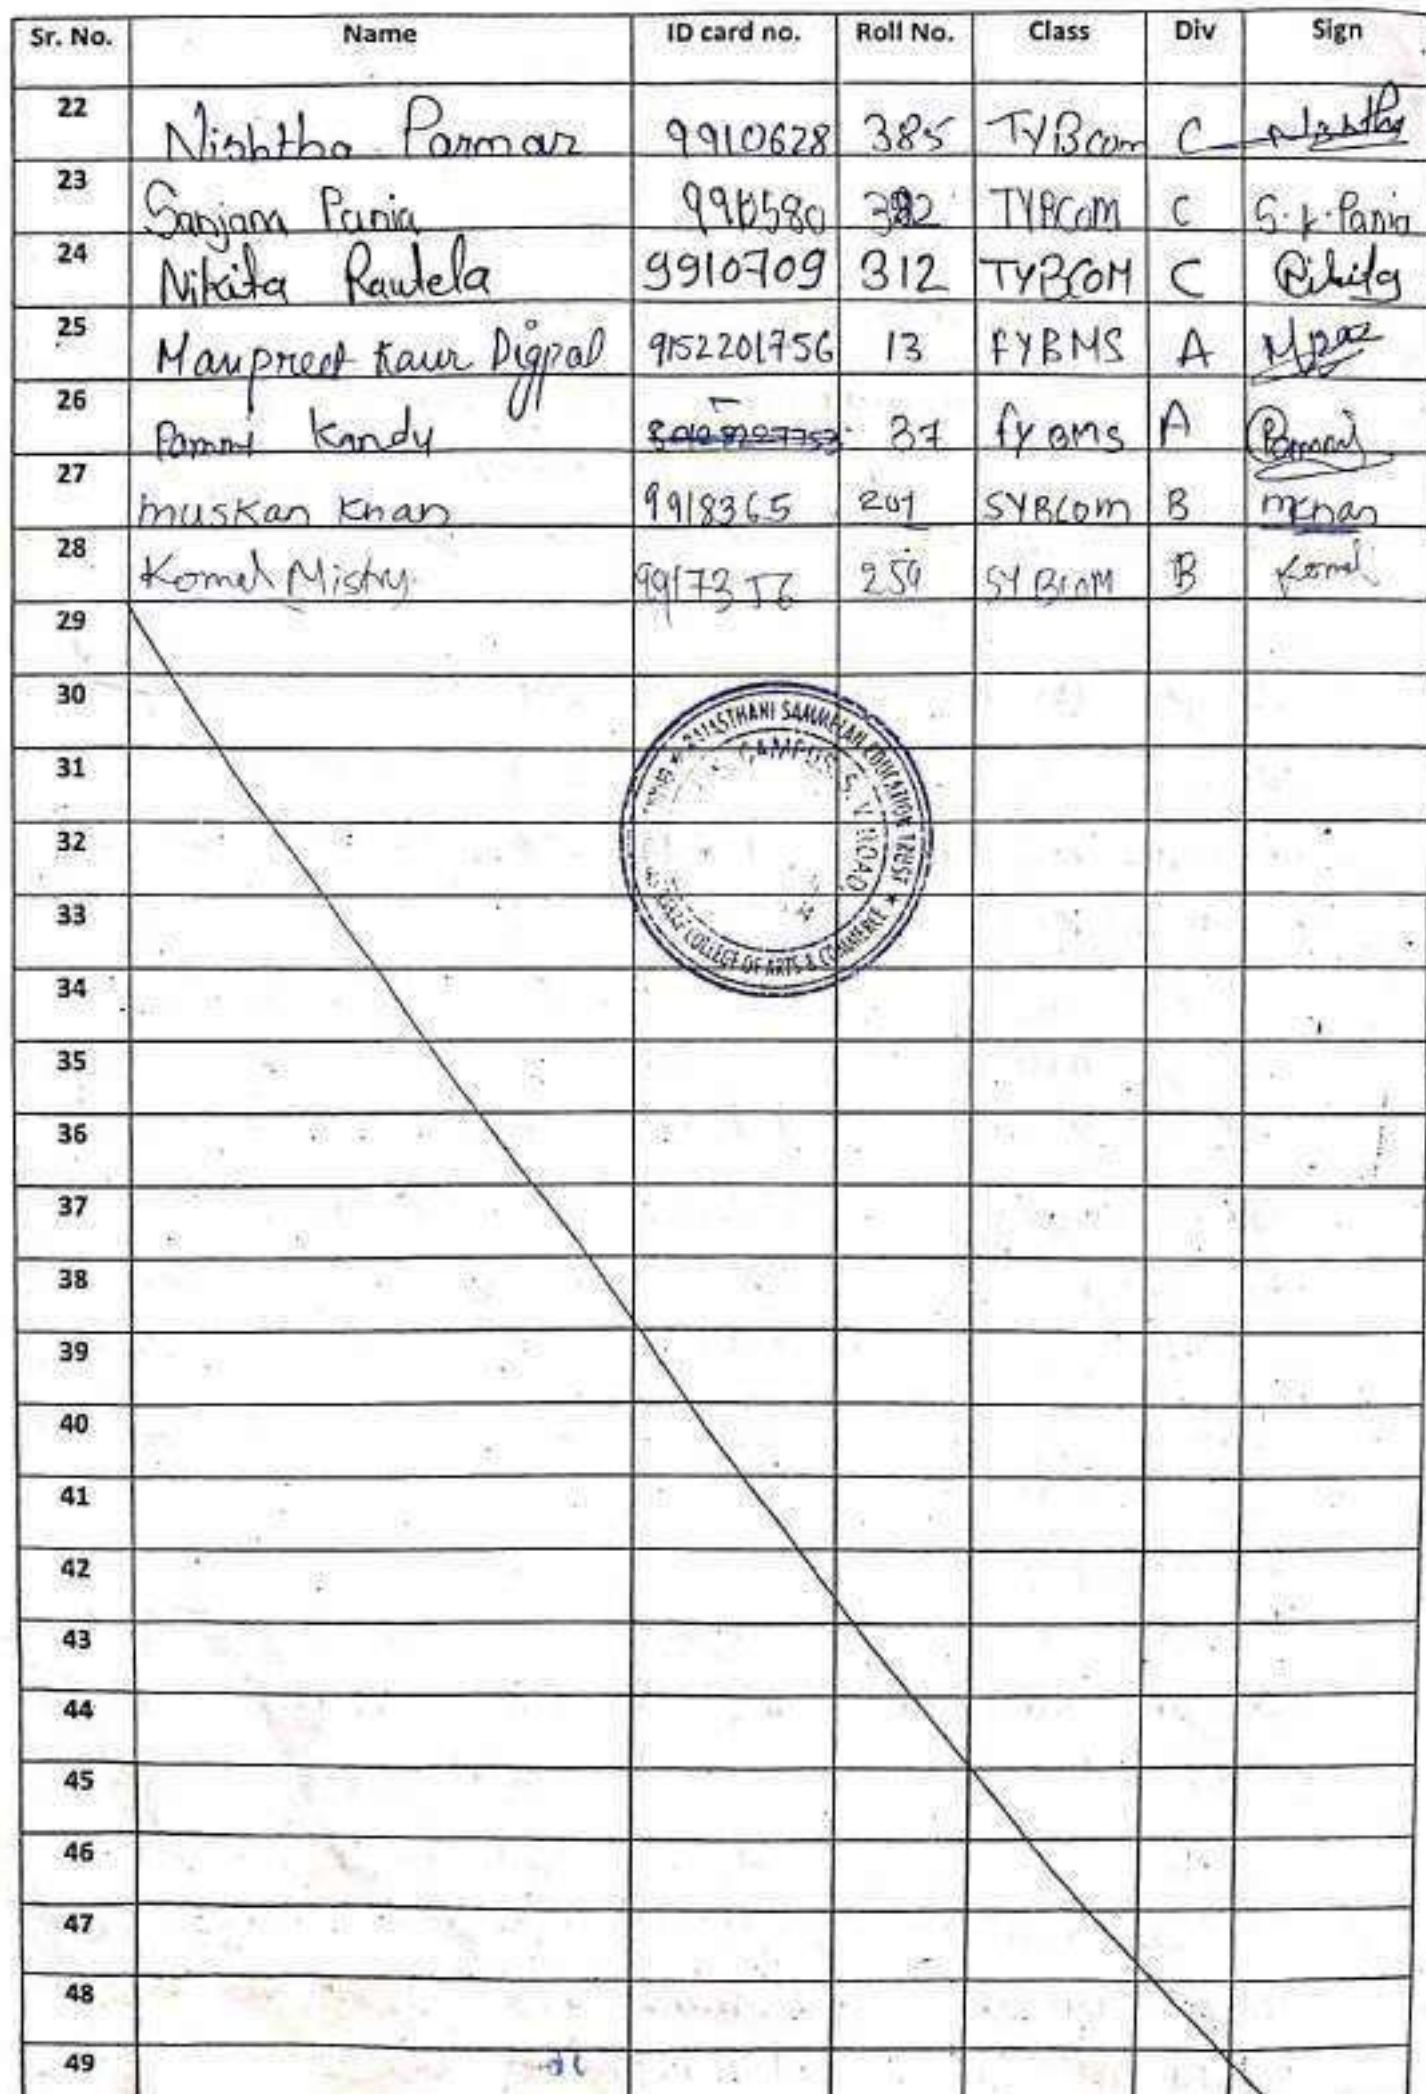 Sr. No. Name ID card no. Roll No. Class Div Sign
22 Nishtha Parmar 9910628 385 TYBcom C Nishtha
23 Sanjam Pania TYBCOM C S.k.Pania
24 Nikita Rautela 9910709 312 TYBCOM C Nikita
25 Manpreet Kaur Digpal 9152201756 13 FYBMS A
26 Pammi Kandu 37 fyBMS A Pammi
27 muskan Khan 9918365 201 SYBCOM B mkhan
28 Komal Mistry 9917356 254 SYBCOM B Komal
29
30
31
32
33
34
35
36
37
38
39
40
41
42
43
44
45
46
47
48
49
RAJASTHANI SAMMELAN EDUCATION TRUST ★
COLLEGE OF ARTS & COMMERCE ★
CAMPUS, S. V. ROAD,